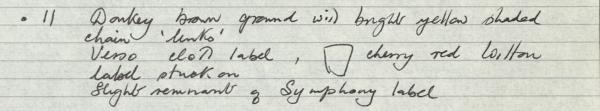 • 11 Donkey brown ground with bright yellow shaded
chain 'links'
Verso cloth label, cherry red Wilton
label stuck on
Slight remnant of Symphony label